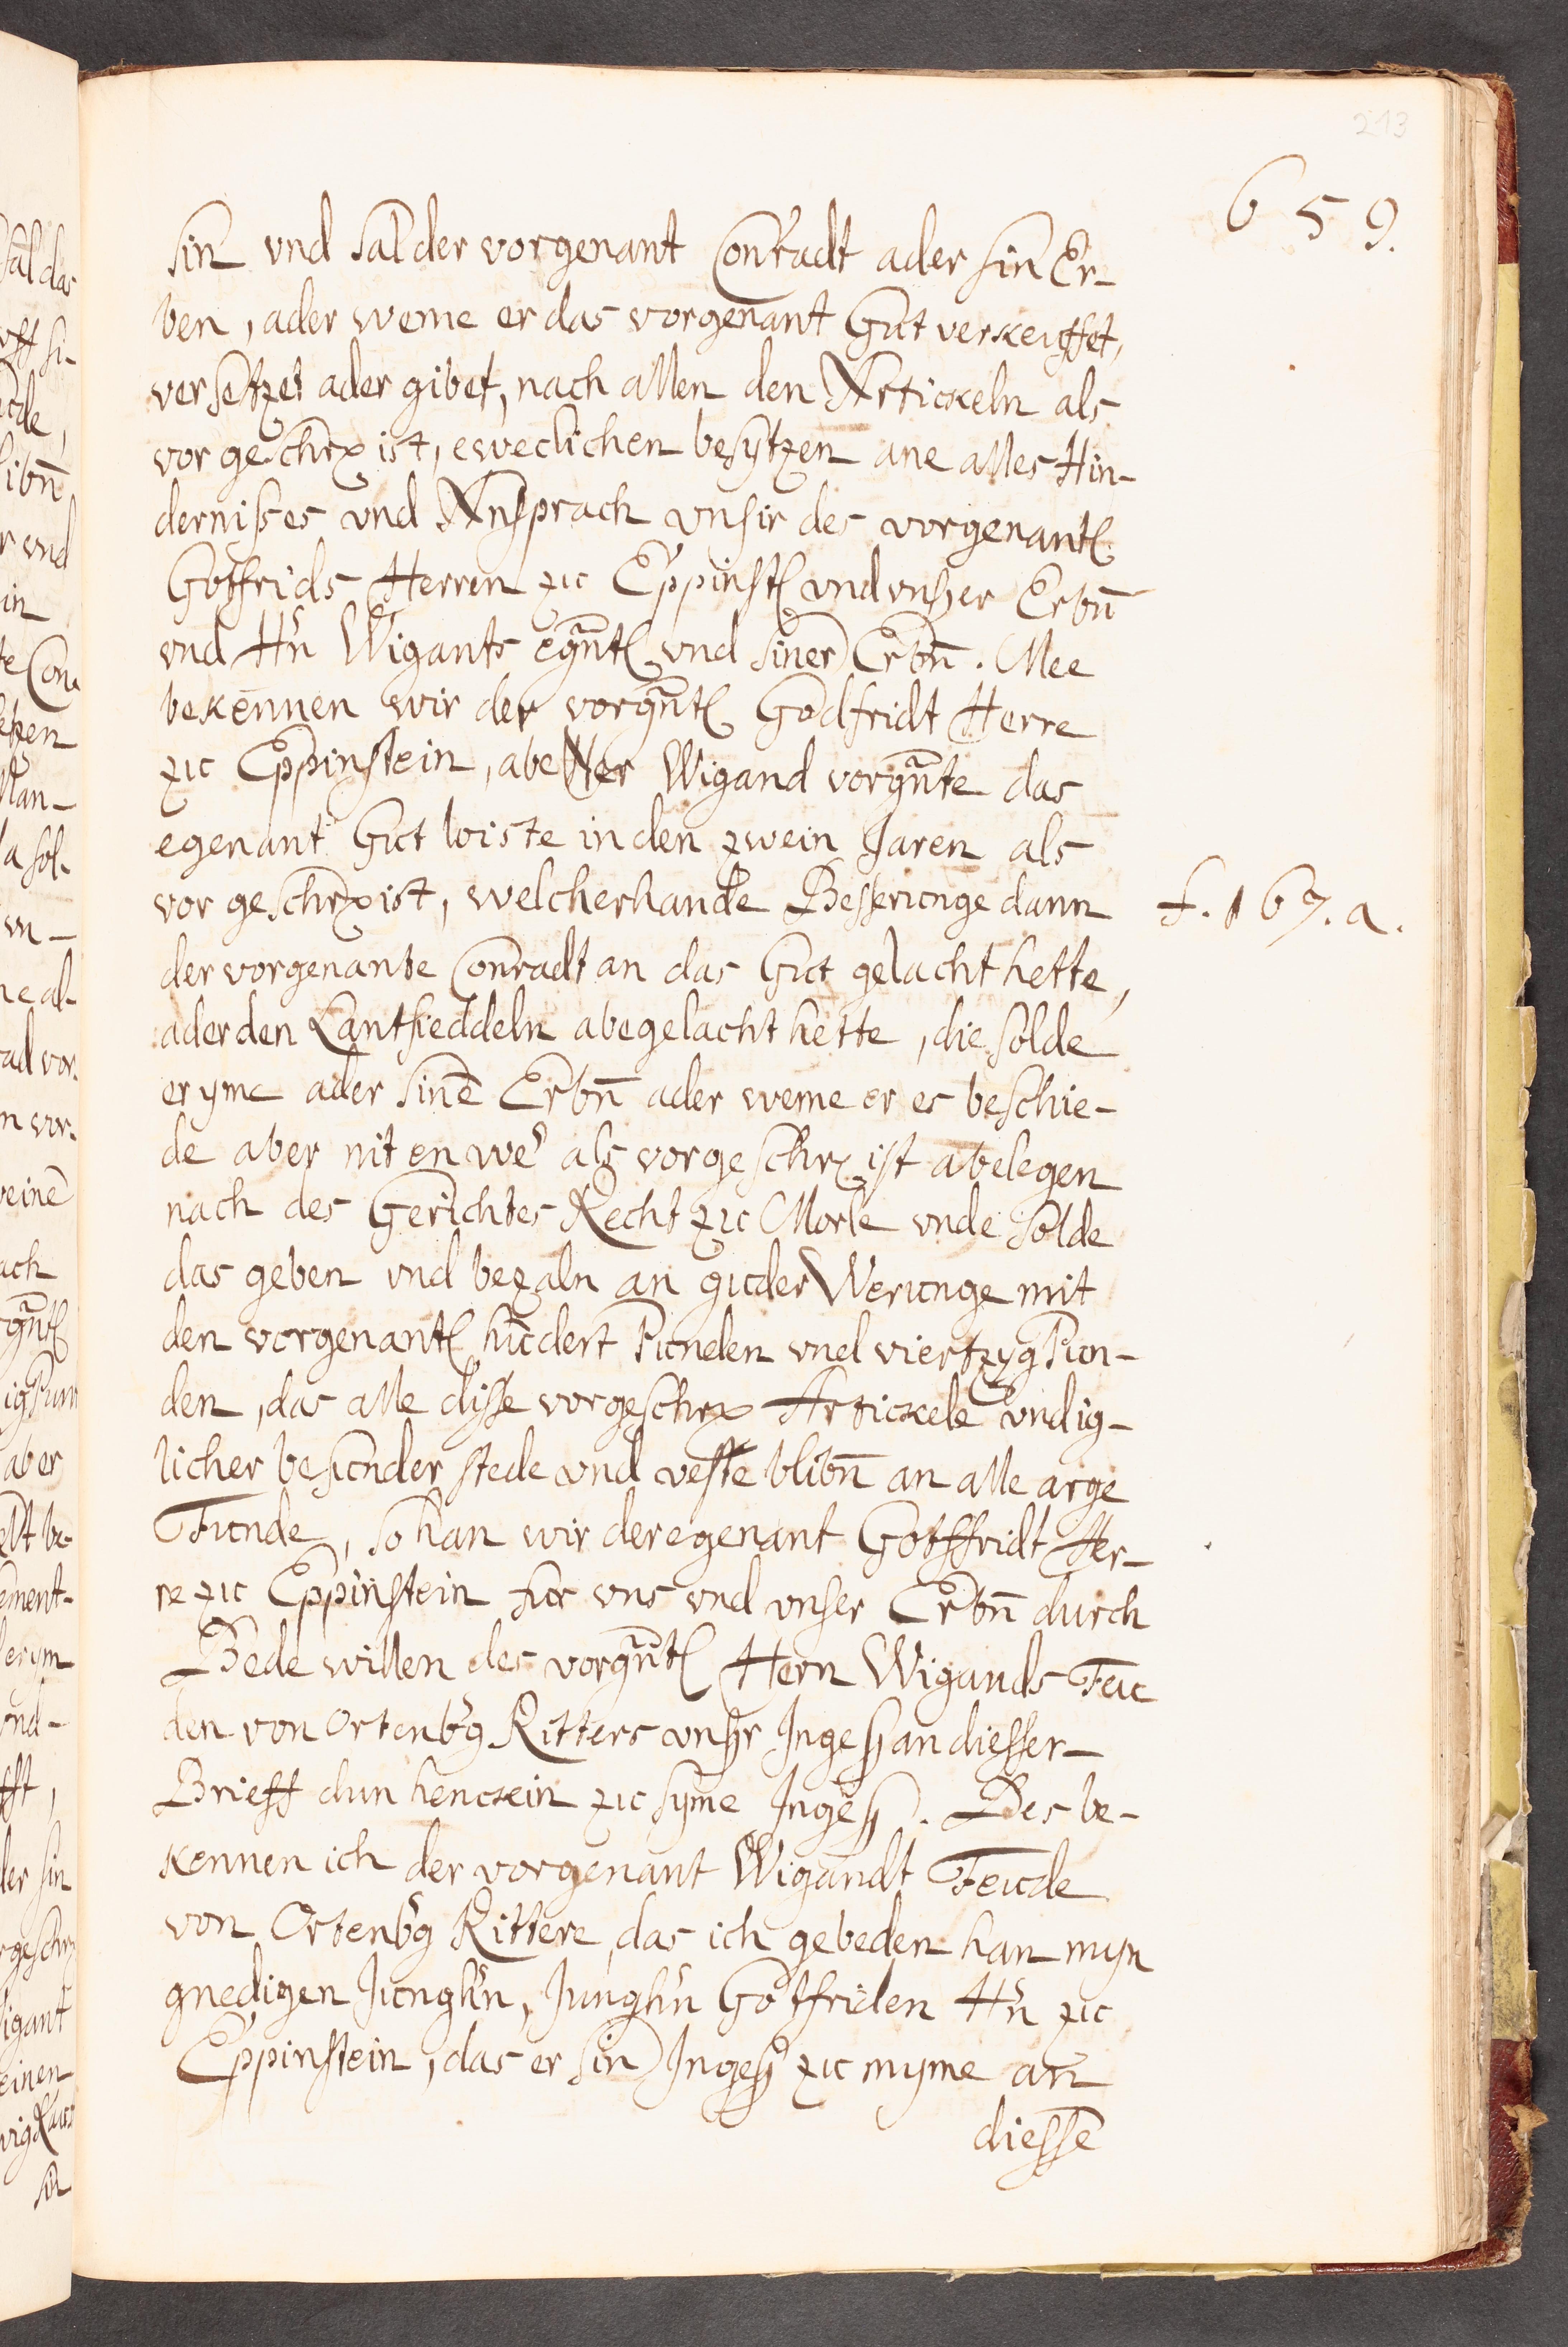 213
659.
sin vnd sal der vorgenant Conradt ader sin Er-
ben, ader weme er das vorgenant Gut verkeuffet,
versetzet ader gibet, nach allen den Artickeln als
vor geschrx ist, eweclichen besytzen ane alles Hin-
dernißes vnd Ansprach vnsir des vorgenantꝭ
Gotfrids Herren zu Eppinstꝭ vnd vnßer Erbn̄
vnd Hn̄ Wigants egn̄tꝭ vnd siner Erbn̄. Mee
bekennen wir der vorgn̄tꝭ Godfridt Herre
zu Eppinstein, abe Her Wigand vorgn̄te das
egenant Gut loiste in den zwein Jaren als
vor geschrx ist, welcherhande Besserunge dann
f. 167. a.
der vorgenante Conradt an das Gut gelacht hette,
ader den Lantsieddeln abegelacht hette, die solde
er yme ader sinē Erbn̄ ader weme er es beschie-
de aber nit en we' als vorgeschrx ist abelegen
nach des Gerichtes Recht zu Morle vnde solde
das geben vnd bezaln an guder Werunge mit
den vorgenantꝭ hūdert Punden vnd viertzyg Pun-
den, das alle disse vorgeschrx Artickele vnd ig-
licher besunder stede vnd veste blibn̄ an alle arge
Funde, so han wir der egenant Gotffridt Her-
re zu Eppinstein fur vns vnd vnser Erbn̄ durch
Bede willen des vorgn̄tꝭ Hern Wigands Feu
den von Ortenb'g Ritters vnßr Ingeß an diesser
Brieff dun henckein zu syme Ingeß. Des be-
kennen ich der vorgenant Wigandt Feude
von Ortenb'g Rittere, das ich gebeden han myn
gnedigen Junghn̄, Junghn̄ Gotfriden Hn̄ zu
Eppinstein, das er sin Ingeß zu myme an
diessē